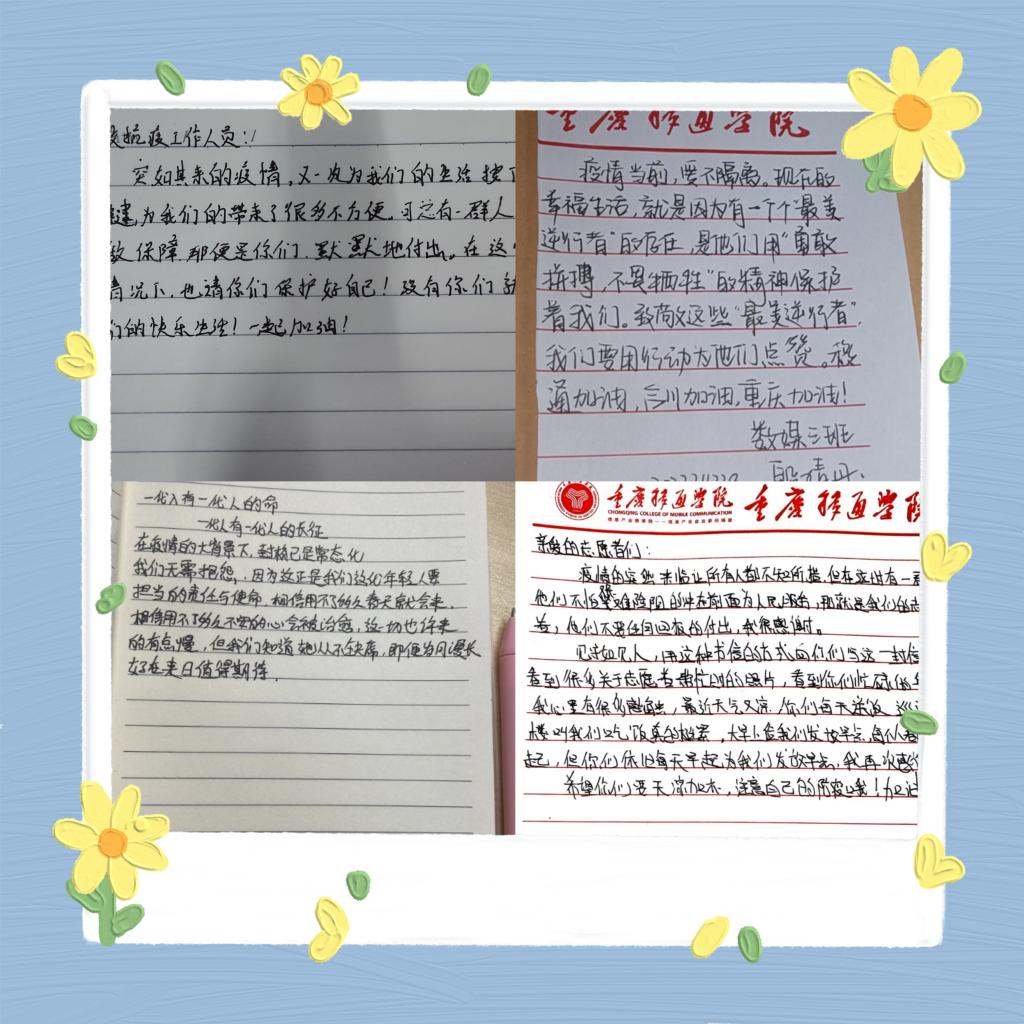 抗疫工作人员:
突如其来的疫情,又一次为我们的生活按下
键,为我们的带来了很多不方便。可总有一群人
保障,那便是你们,默默地付出。在这
情况下,也请你们保护好自己!没有你们就
们的快乐生活!一起加油!
重庆移通学院
疫情当前,爱不隔离。现在的
幸福生活,就是因为有一个个“最美
逆行者”的存在,是他们用“勇敢
拼搏,不畏牺牲”的精神保护
着我们。致敬这些“最美逆行者”,
我们要用行动为他们点赞。移
通加油,合川加油,重庆加油!
数媒三班
一代人有一代人的命
一代人有一代人的长征
在疫情的大背景下,封校已是常态化
我们无需抱怨,因为这正是我们这代年轻人要
担当的责任与使命,相信用不了多久春天就会来,
相信用不了多久不安的心会被治愈,这一切也许来
的有点慢,但我们知道她从不缺席,即便岁月漫长
好在来日值得期待.
重庆移通学院 重庆移通学院
CHONGQING COLLEGE OF MOBILE COMMUNICATION
亲爱的志愿者们:
疫情的突然来临让所有人都不知所措,但在这世有一群
他们不怕艰难险阻的冲在前面为人民服务,那就是我们的志
者,他们不要任何回报的付出,我很感谢。
见字如见人,用这种书信的方式向你们写这一封信
看到很多关于志愿者帮忙时的照片,看到你们忙碌的身
我心里有很多感触,最近天气又凉,你们每天
楼叫我们吃饭真的很累,大早上给我们发放早点,每个人都
起,但你们依旧每天早起为我们发放早点,我再次感谢
希望你们冬天添加衣,注意自己的防疫